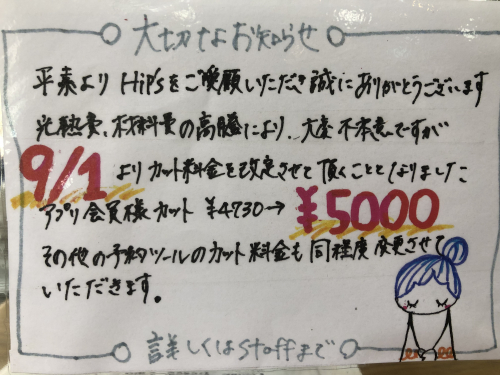 大切なお知らせ
平素より Hip'sをご愛顧いただき誠にありがとうございます
光熱費、材料費の高騰により、大変不本意ですが
9/1 よりカット料金を改定させて頂くこととなりました
アプリ会員様カット ¥4730→ ¥5000
その他の予約ツールのカット料金も同程度変更させて
いただきます。
詳しくはstaffまで